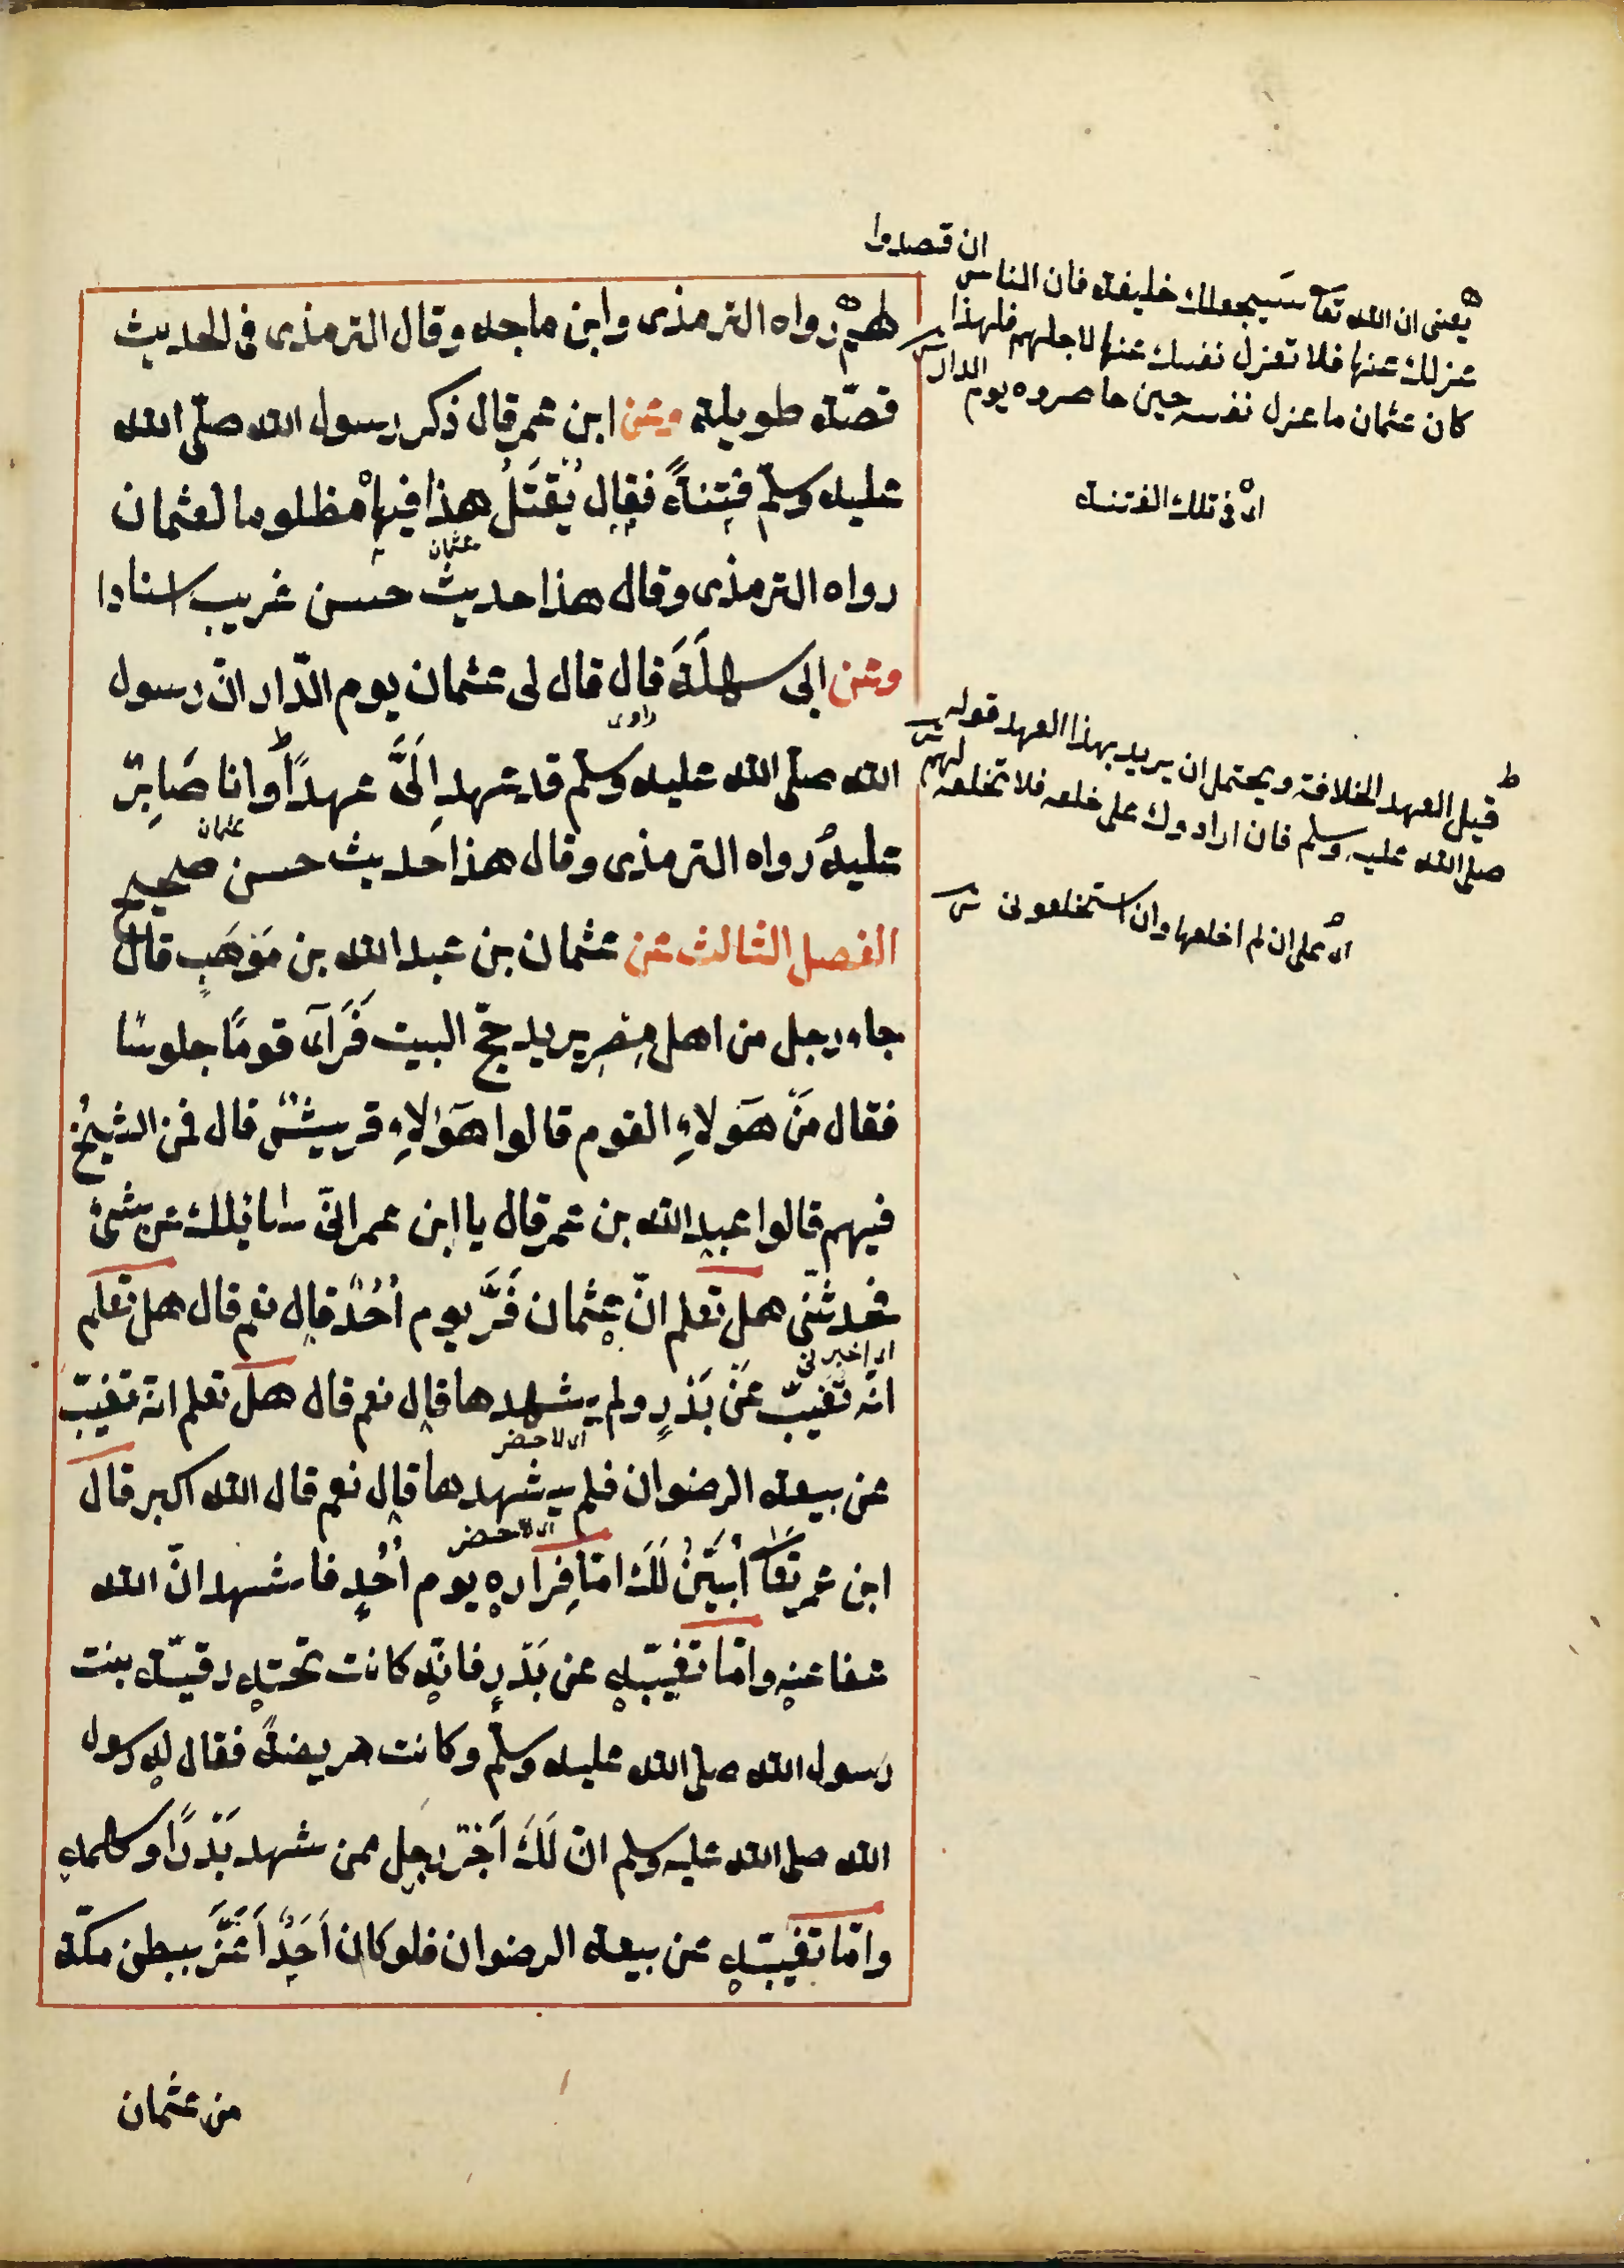 لهم رواه الترمذى وابن ماجه وقال الترمذى فى الحديث
قصّة طويلة وعن ابن عمر قال ذكر رسول الله صلّى الله
عليه وسلم فِتنةً فقال يُقتَلُ هذا فيها مظلوما لعثمان
رواه الترمذى وقال هذا حديث حسن غريب اسنادا
عثمان
وعن ابى سهلَةَ قال قال لى عثمان يوم الدّار انّ رسول
راوى
الله صلّى الله عليه وسلم قد عهد اِلَىَّ عهدًا وانا صَابِرٌ
عليه رواه الترمذى وقال هذا حديث حسن صحيح
عثمان
الفصل الثالث عن عثمان بن عبد الله بن مَوْهَبٍ قال
جاء رجل من اهل مِصر يريد حَجّ البيت فَرَآى قومًا جلوسًا
فقال مَنْ هَولاءِ القوم قالوا هَؤلاءِ قريشٌ قال فمن الشيخُ
فيهم قالوا عبد الله بن عمر قال يا ابن عمر انّى سائلك عن شئ
فحدثنّى هل تعلم انّ عثمان فَرَّ يوم اُحُدٍ قال نعم قال هل تعلم
اى اخبرنى
انّه تغيّب عَنْ بَدْرٍ ولم يشهدها قال نعم قال هل تعلم انّه تغيّب
اى لا حضر
عن بيعة الرضوان فلم يشهدها قال نعم قال الله اكبر قال
اى لا حضر
ابن عمر تعَالَ اُبَيِّنْ لَكَ امّا فِرَاره يوم اُحُدٍ فاشهد انّ الله
عفا عنه وامّا تغيّبه عن بَدْرٍ فانّه كانت تحته رقيّة بنت
رسول الله صلى الله عليه وسلّم وكانت مريضةً فقال له رسول
الله صلى الله عليه وسلم ان لَكَ اَجْرَ رجل ممن شهد بَدْرًا وسهمه
وامّا تغيّبه عن بيعة الرضوان فلو كان اَحَدٌ اَعَزَّ ببطن مكّة
من عثمان
يعنى ان الله تعا سيجعلك خليفة فان الناس ان قصدوا
عزلك عنها فلا تعزل نفسك عنها لاجلهم فلهذا
كان عثمان ما عزل نفسه حين حاصروه يوم الدار
اى فى تلك الفتنة
قيل العهد الخلافة ويحتمل ان يريد بهذا العهد قوله
صلى الله عليه وسلم فان ارادوك على خلعه فلا تخلعه لهم
اى على ان لم اخلعها وان استخلعونى